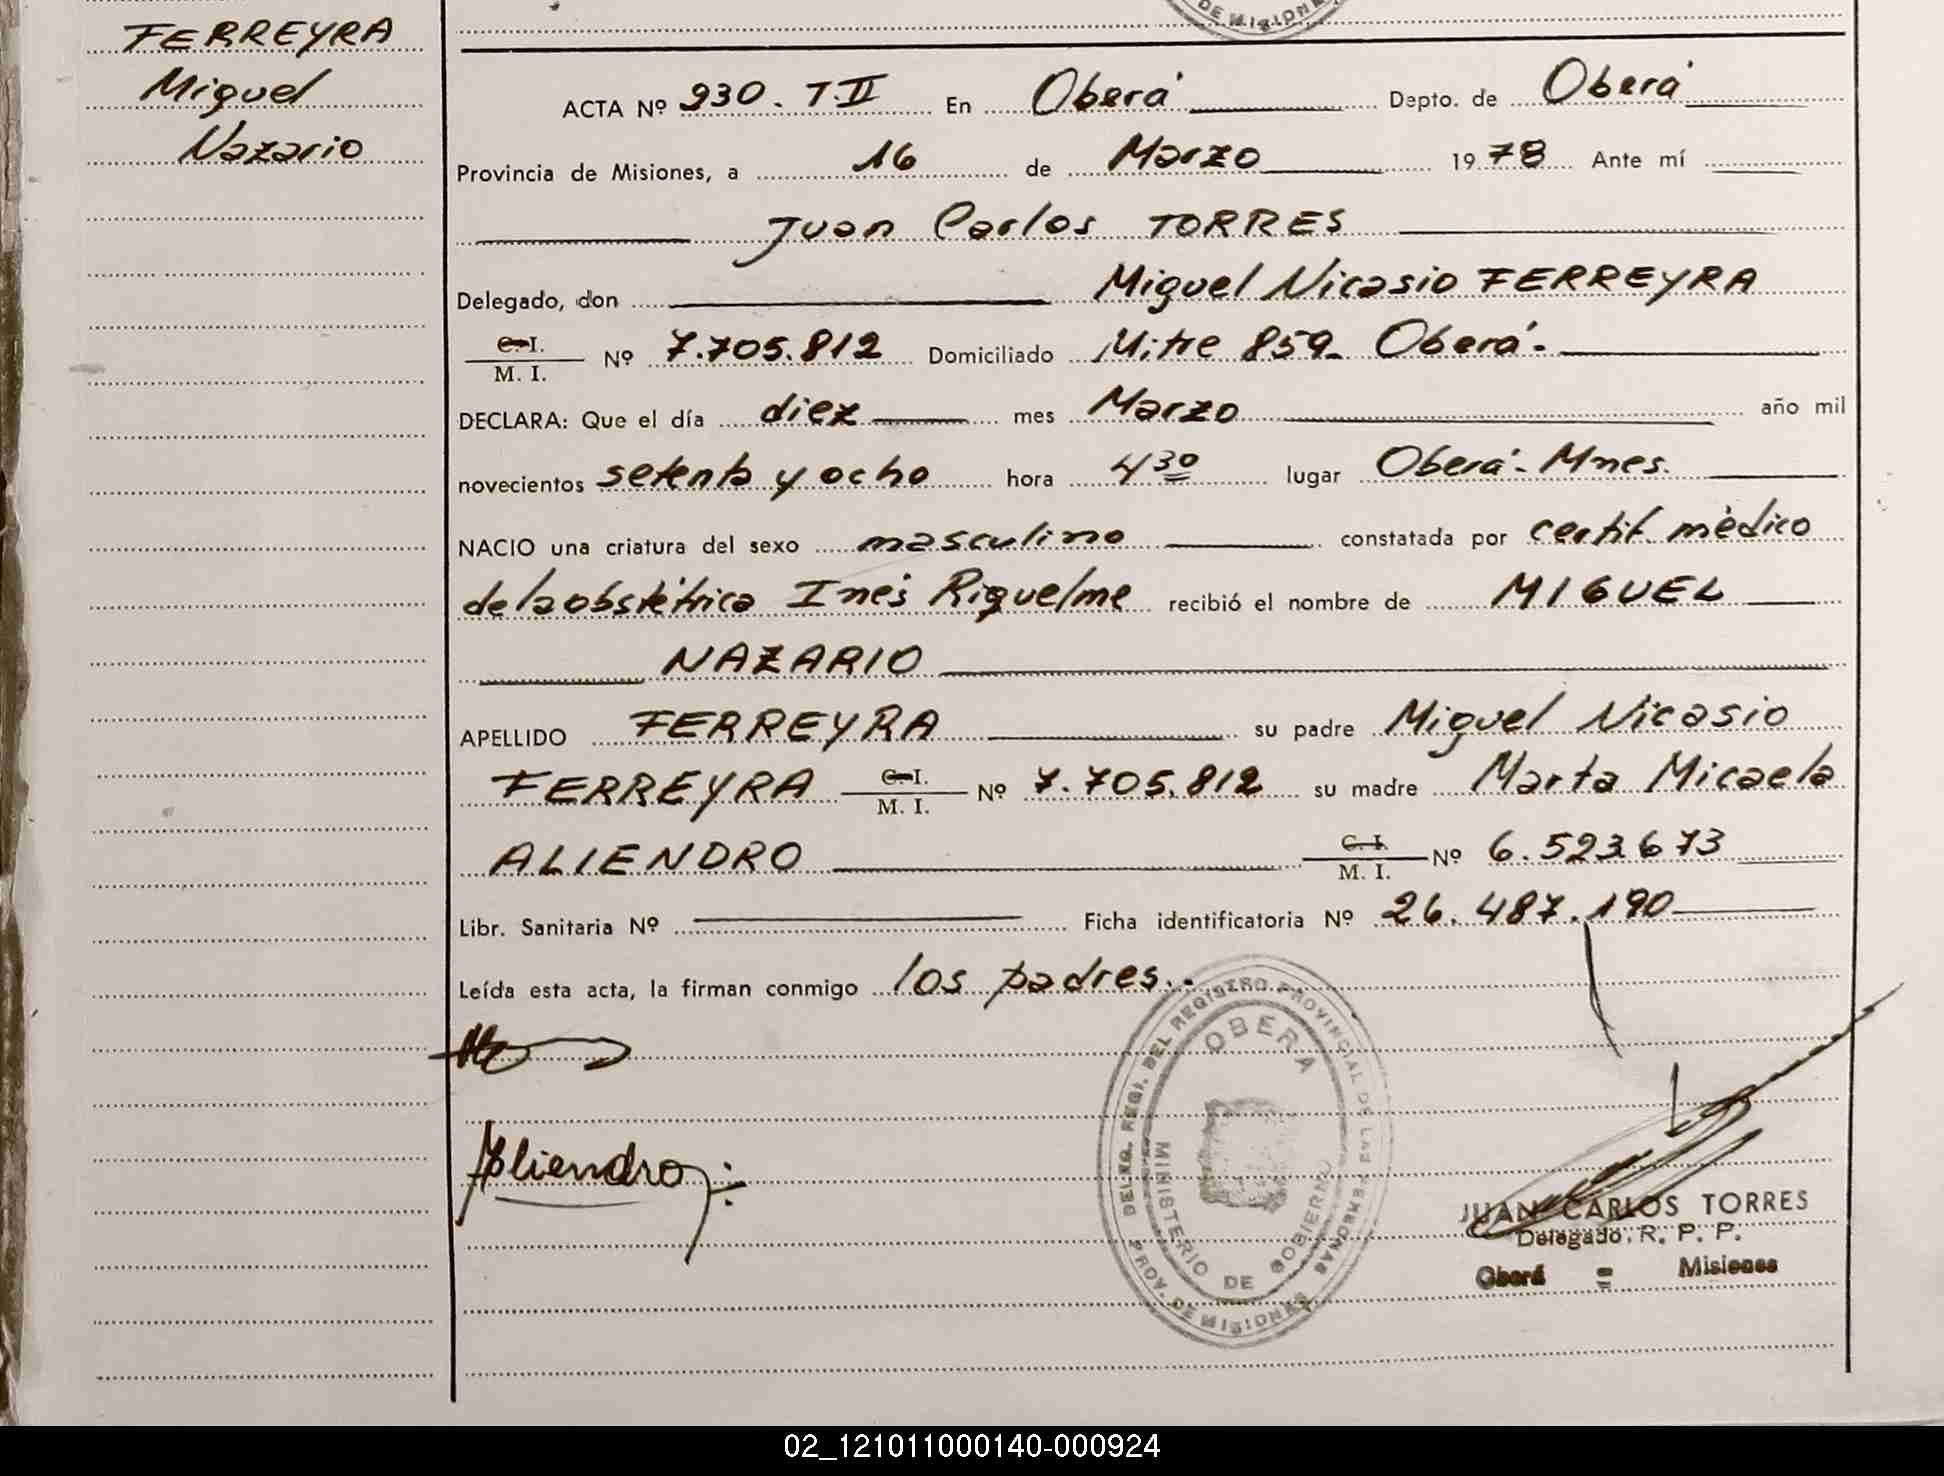 FERREYRA
Miguel
Nazario
DE MISIONES
ACTA Nº 930. T.II En Oberá Depto. de Oberá
Provincia de Misiones, a 16 de Marzo 1978 Ante mí
Juan Carlos TORRES
Delegado, don Miguel Nicasio FERREYRA
C.I. M. I. Nº 7.705.812 Domiciliado Mitre 859 Oberá.
DECLARA: Que el día diez mes Marzo año mil
novecientos setenta y ocho hora 4 30 lugar Oberá - Mnes.
NACIO una criatura del sexo masculino constatada por certif. médico
de la obstétrica Inés Riquelme recibió el nombre de MIGUEL
NAZARIO
APELLIDO FERREYRA su padre Miguel Nicasio
FERREYRA C.I. M. I. Nº 7.705.812 su madre Marta Micaela
ALIENDRO C.I. M. I. Nº 6.523.673
Libr. Sanitaria Nº Ficha identificatoria Nº 26.487.190
Leída esta acta, la firman conmigo los padres..
Aliendro
DEL REGISTRO PROVINCIAL DE LAS PERSONAS
OBERA
MINISTERIO DE GOBIERNO
PROV. DE MISIONES
JUAN CARLOS TORRES
Delegado, R. P. P.
Oberá = Misiones
02_121011000140-000924